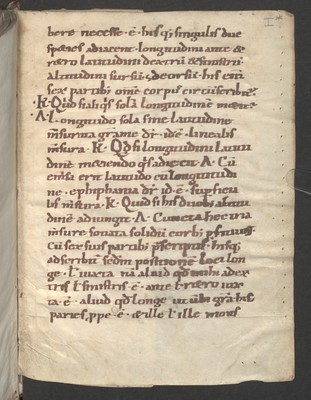 bere necesse · ē · his q; singulis due
species adiacent · longitudini ante &
retro latitudini dextrū & sinistrū
altitudini sursū & deorsū · his etiā
sex partib; omē corp circūscribit
K · Quid si aliq's solā longitudinē metit
Δ · Longitudo sola sine latitudine
mensurata grāme dr̄ · id · ē · linealis
mensura · K · Qđ si longitudini latitu
dinē metiendo q's adiecerit · Δ · Cū
mensū erit latitudo cū longitudi
ne · epiphania dr̄ id · ē · supficia
lis mensura · K · Quid si his duob; altitu
dinē adiungit · Δ · Cuncta hec tria
mensurē sonata solidū corp
Cū sex suis partib; pscriptis · hisq;
adscribitur sedm positionē loci lon
ge · t iuxta nā aliud qđ mihi a dex
tris t sinistris · ē · ante t retro iux
ta · ē · aliud qđ longe ut ubi grā his
paries ppe · ē · & ille t ille mons